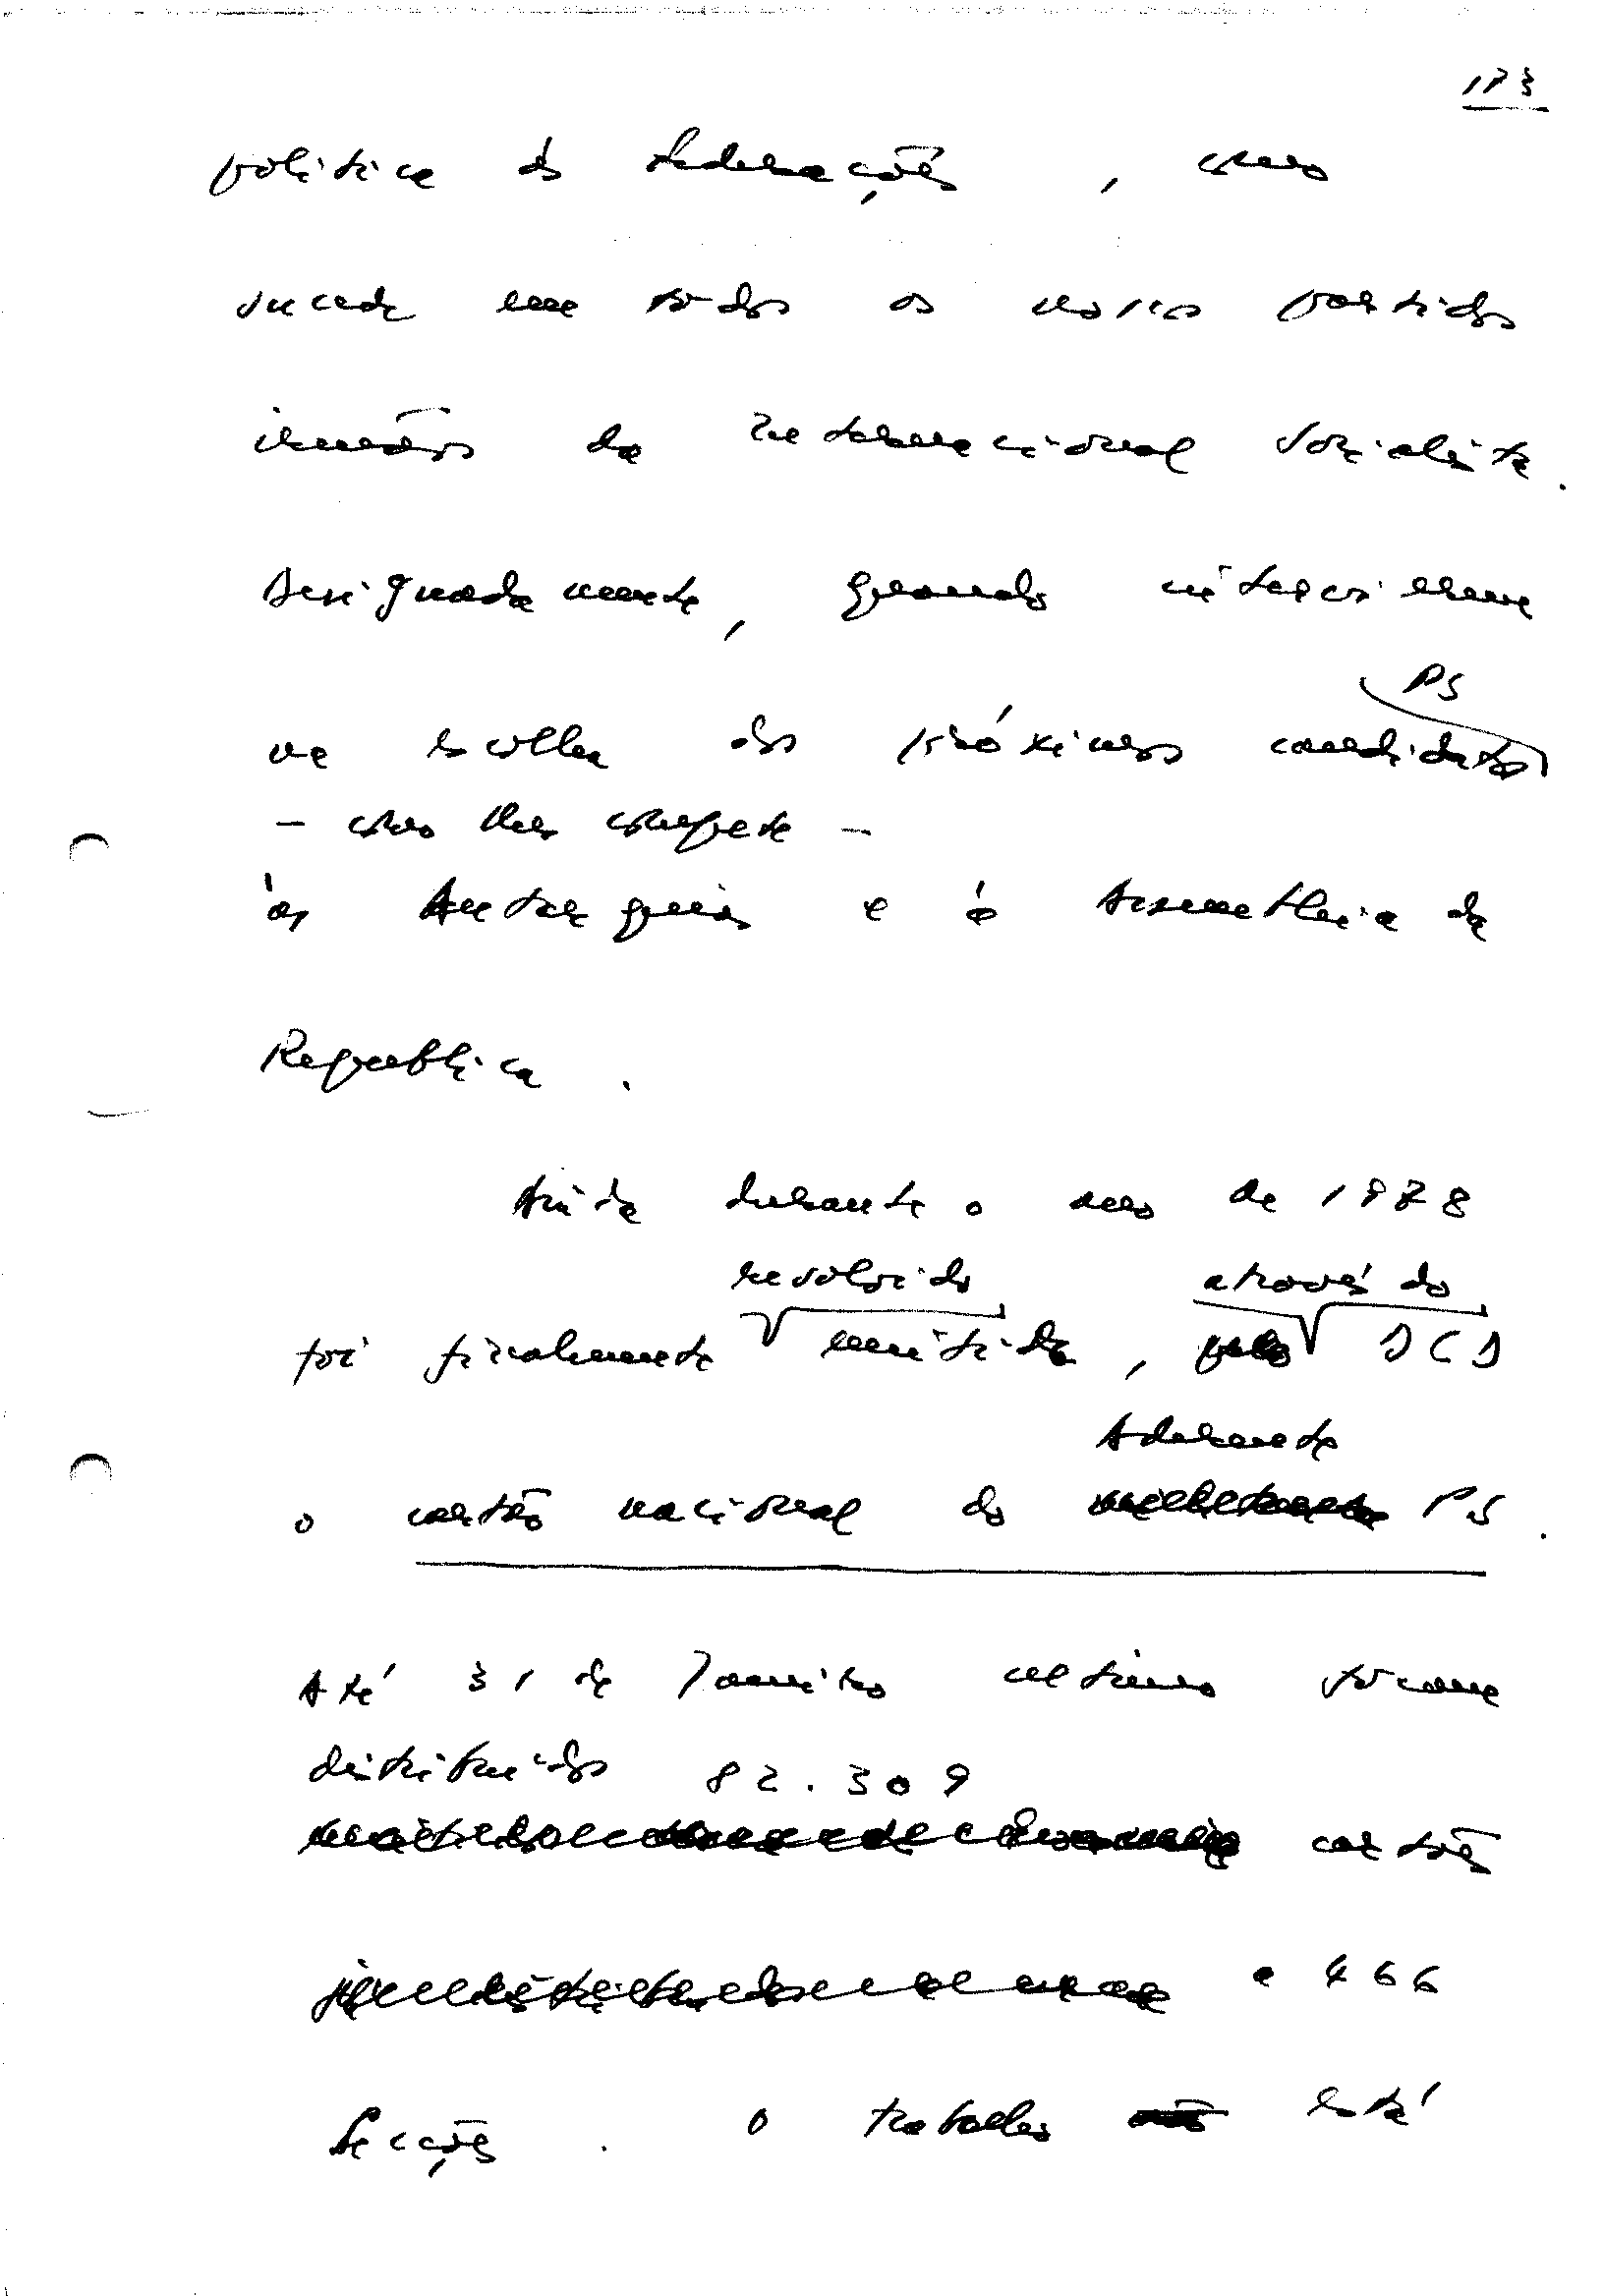 173
política das Federações, como
sucede em todos os nossos partidos
irmãos da Internacional Socialista.
Designadamente, quando intervierem
PS
na escolha dos próximos candidatos
- como lhes compete -
às Autarquias e à Assembleia da
Republica.
Ainda durante o ano de 1978
resolvido através do
foi finalmente emitido, pelo DCD
Aderente
o cartão nacional do militante PS.
Até 31 de Janeiro ultimo foram
distribuidos 82.309
cartões
e 466
Secções. O trabalho não está